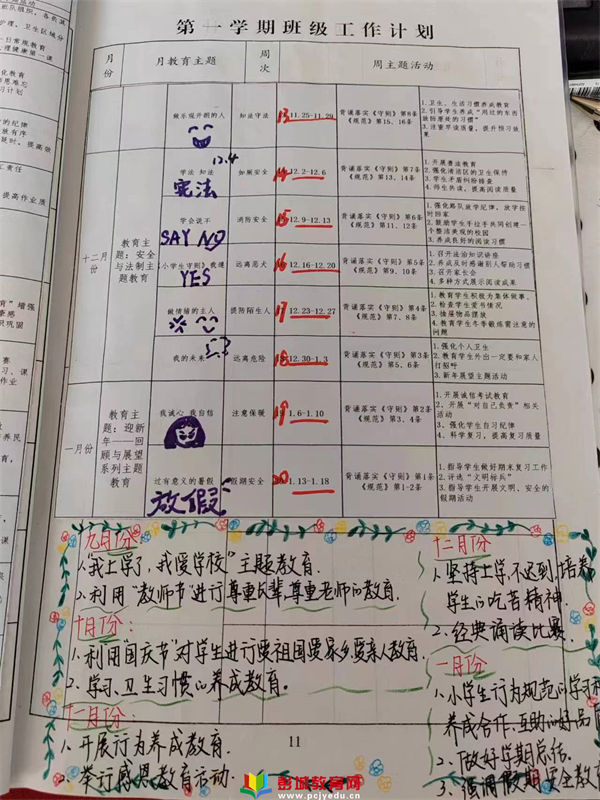 第一学期班级工作计划
月份
月教育主题
周次
周主题活动
做乐观开朗的人
知法守法
13 11.25-11.29
背诵落实《守则》第8条
《规范》第15、16条
1.卫生、生活习惯养成教育
2.引导学生养成“用过的东西
放回原处的习惯”
3.注重早读质量，提升预习效
果
十二月份
教育主
题：安全
与法制主
题教育
学法 知法
12.4
宪法
如厕安全
14 12.2-12.6
背诵落实《守则》第7条
《规范》第13、14条
1.开展普法教育
2.强化清洁区的卫生保持
3.学生矛盾纠纷排查
4.师生共读，提高阅读质量
学会说不
SAY NO
消防安全
15 12.9-12.13
背诵落实《守则》第6条
《规范》第11、12条
1.强化路队放学纪律，放学按
时回家
2.鼓励学生手拉手共同创建一
个整洁美观的校园
3.养成良好的阅读习惯
《小学生守则》我懂
YES
远离恶犬
16 12.16-12.20
背诵落实《守则》第5条
《规范》第9、10条
1.召开法治知识讲座
2.养成及时感谢别人帮助习惯
3.召开家长会
4.多种方式展示阅读成果
做情绪的主人
提防陌生人
17 12.23-12.27
背诵落实《守则》第4条
《规范》第7、8条
1.教育学生积极为集体做事。
2.检查学生爱书情况
3.抽展物品摆放
4.教育学生冬季锻炼需注意的
问题
我的未来
远离危险
18 12.30-1.3
背诵落实《守则》第3条
《规范》第5、6条
1.强化个人卫生
2.教育学生外出一定要和家人
打招呼
3.新年展望主题活动
一月份
教育主
题：迎新
年——回
顾与展望
系列主题
教育
我诚心 我自信
注意保暖
19 1.6-1.10
背诵落实《守则》第2条
《规范》第3、4条
1.开展诚信考试教育
2.开展“对自己负责”相关
活动
3.强化学生自习纪律
4.科学复习，提高复习质量
过有意义的暑假
放假
假期安全
20 1.13-1.18
背诵落实《守则》第1条
《规范》第1-2条
1.指导学生做好期末复习工作
2.评选“文明标兵”
3.指导学生开展文明、安全的
假期活动
九月份
1.“我上学了，我爱学校”主题教育.
2.利用“教师节”进行尊重长辈,尊重老师的教育.
十月份：
1.利用国庆节”对学生进行爱祖国爱家乡爱亲人教育.
2.学习、卫生习惯的养成教育。
十一月份：
1.开展行为养成教育.
举行感恩教育活动.
十二月份
1.坚持上学,不迟到.培养
学生的吃苦精神.
2.经典诵读比赛.
一月份
1.小学生行为规范的学习
养成合作、互助的好品
2.做好学期总结.
3.强调假期安全教
11
彭城教育网
www.pcjyedu.cn